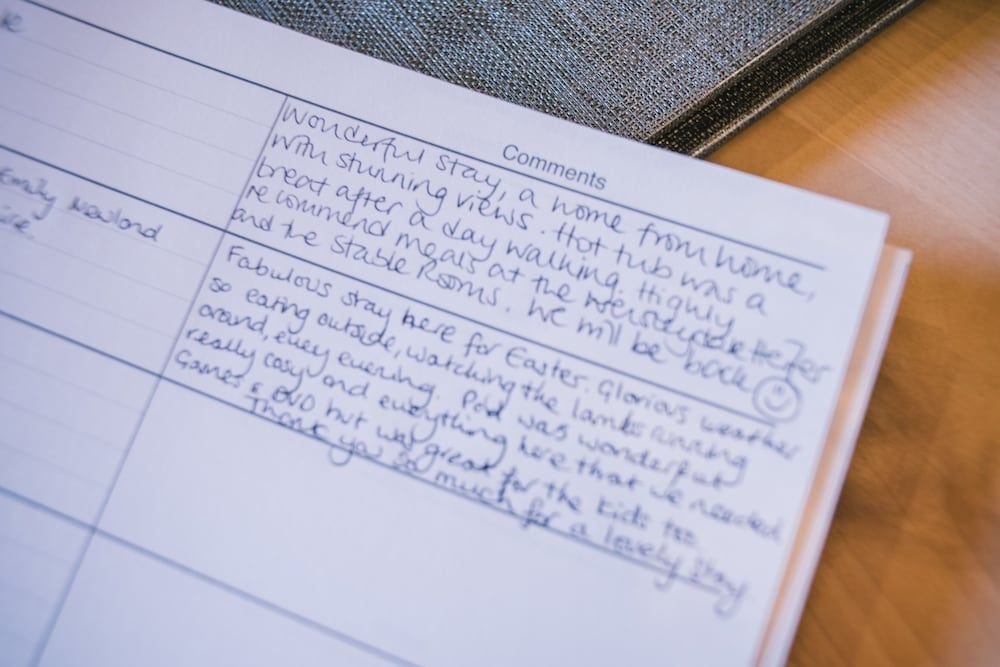 Comments
Wonderful stay, a home from home,
with stunning views. Hot tub was a
treat after a day walking. Highly
recommend meals at the
and the Stable Rooms. We will be back ☺
Emily Newland
Fabulous stay here for Easter. Glorious weather
so eating outside, watching the lambs running
around, every evening. Pod was wonderful
really cosy and everything here that we needed
Games & DVD but was great for the kids too
Thank you so much for a lovely stay